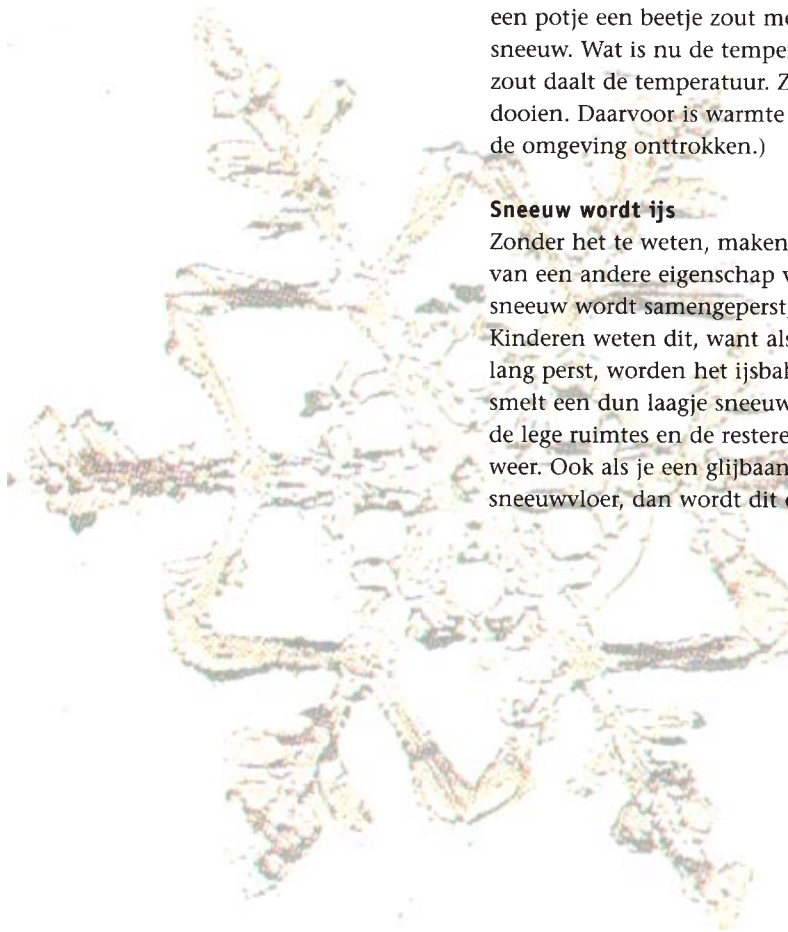 een potje een beetje zout me
sneeuw. Wat is nu de tempe
zout daalt de temperatuur. Z
dooien. Daarvoor is warmte
de omgeving onttrokken.)
Sneeuw wordt ijs
Zonder het te weten, maken
van een andere eigenschap v
sneeuw wordt samengeperst,
Kinderen weten dit, want als
lang perst, worden het ijsbal
smelt een dun laagje sneeuw
de lege ruimtes en de restere
weer. Ook als je een glijbaan
sneeuwvloer, dan wordt dit e